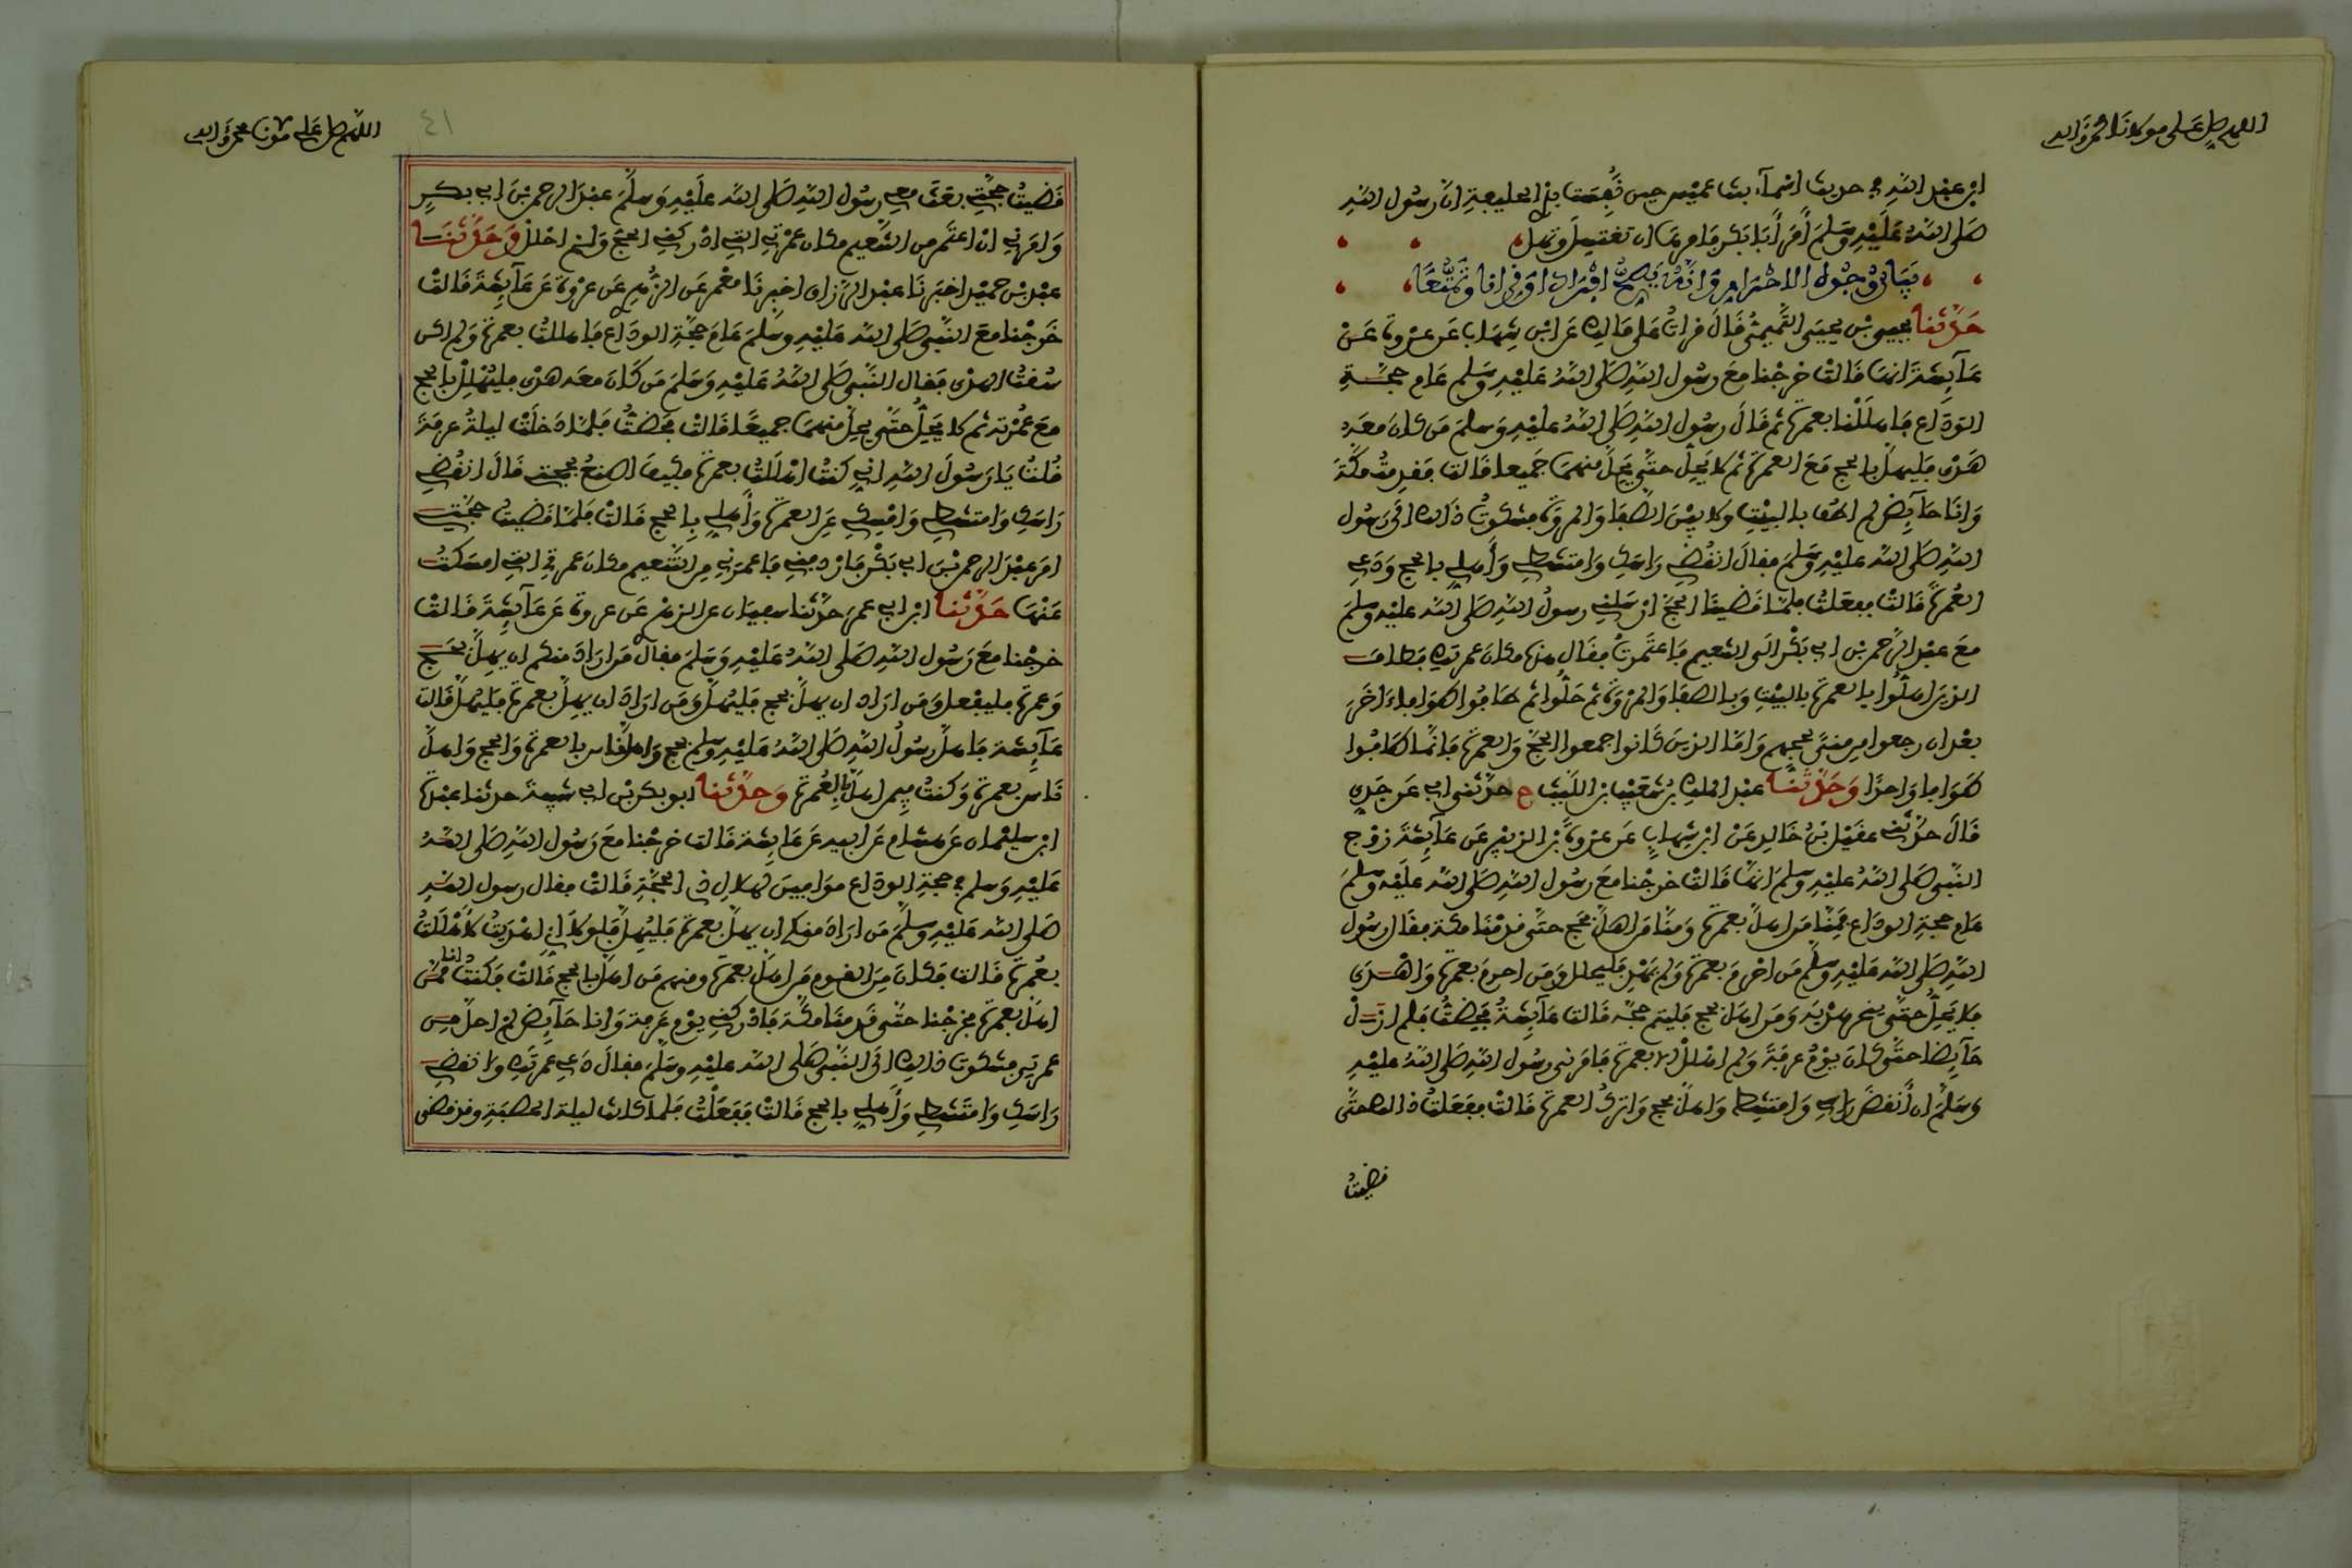 اللهم صل على مولانا محمد وءاله
ابن عبد الله في حديث اسماء بنت عميس حين نُفِست بذي الحليفة ان رسول الله
صلى الله عليه وسلم أمر أبا بكر فامرها ان تغتسل وتهل
بيان وجوه الاحرام وانه يصح افراد او قرانا وتمتعا
حدثنا يحيى بن يحيى التميمي قال قرات على مالك عن ابن شهاب عن عروة عن
عائشة انها قالت خرجنا مع رسول الله صلى الله عليه وسلم عام حجة
الوداع فاهللنا بعمرة ثم قال رسول الله صلى الله عليه وسلم من كان معه
هدي فليهل بالحج مع العمرة ثم لا يحل حتى يحل منهما جميعا قالت فقدمت مكة
وانا حائض لم اطف بالبيت ولا بين الصفا والمروة فشكوت ذالك الى رسول
الله صلى الله عليه وسلم فقال انقضي راسك وامتشطي وأهلي بالحج ودعي
العمرة قالت ففعلت فلما قضينا الحج ارسلني رسول الله صلى الله عليه وسلم
مع عبد الرحمن بن ابي بكر الى التنعيم فاعتمرت فقال هذه مكان عمرتك فطاف
الذين اهلوا بالعمرة بالبيت وبالصفا والمروة ثم حلوا ثم طافوا طوافا ءاخر
بعد ان رجعوا من منى لحجهم واما الذين كانوا جمعوا الحج والعمرة فانما طافوا
طوافا واحدا وحدثنا عبد الملك بن شعيب بن الليث ح حدثني ابي عن جدي
قال حدثني عقيل بن خالد عن ابن شهاب عن عروة بن الزبير عن عائشة زوج
النبي صلى الله عليه وسلم انها قالت خرجنا مع رسول الله صلى الله عليه وسلم
عام حجة الوداع فمنا من اهل بعمرة ومنا من اهل بحج حتى قدمنا مكة فقال رسول
الله صلى الله عليه وسلم من احرم بعمرة ولم يهد فليحلل ومن احرم بعمرة واهدى
فلا يحل حتى ينحر هديه ومن اهل بحج فليتم حجه قالت عائشة فحضت فلم ازل
حائضا حتى كان يوم عرفة ولم اهلل الا بعمرة فامرني رسول الله صلى الله عليه
وسلم ان أنقض راسي وامتشط واهل بحج واترك العمرة قالت ففعلت ذالك حتى
قضيت
اللهم صل على مولانا محمد وءاله
٤١
قضيت حجتي بعث معي رسول الله صلى الله عليه وسلم عبد الرحمن بن ابي بكر
وامرني ان اعتمر من التنعيم مكان عمرتي التي ادركني الحج ولم احلل وحدثنا
عبد بن حميد اخبرنا عبد الرزاق اخبرنا معمر عن الزهري عن عروة عن عائشة قالت
خرجنا مع النبي صلى الله عليه وسلم عام حجة الوداع فاهللت بعمرة ولم اكن
سقت الهدي فقال النبي صلى الله عليه وسلم من كان معه هدي فليهلل بالحج
مع عمرته ثم لا يحل حتى يحل منهما جميعا قالت فحضت فلما دخلت ليلة عرفة
قلت يا رسول الله اني كنت اهللت بعمرة فكيف اصنع بحجتي قال انقضي
راسك وامتشطي وامسكي عن العمرة وأهلي بالحج قالت فلما قضيت حجتي
امر عبد الرحمن بن ابي بكر فاردفني فاعمرني من التنعيم مكان عمرتي التي امسكت
عنها حدثنا ابن ابي عمر حدثنا سفيان عن الزهري عن عروة عن عائشة قالت
خرجنا مع رسول الله صلى الله عليه وسلم فقال من اراد منكم ان يهل بحج
وعمرة فليفعل ومن اراد ان يهل بحج فليهل ومن اراد ان يهل بعمرة فليهل قالت
عائشة فاهل رسول الله صلى الله عليه وسلم بحج واهل ناس بالعمرة والحج واهل
ناس بعمرة وكنت فيمن اهل بالعمرة وحدثنا ابو بكر بن ابي شيبة حدثنا عبدة
ابن سليمان عن هشام عن ابيه عن عائشة قالت خرجنا مع رسول الله صلى الله
عليه وسلم في حجة الوداع موافين لهلال ذي الحجة قالت فقال رسول الله
صلى الله عليه وسلم من اراد منكم ان يهل بعمرة فليهل فلولا اني اهديت لاهللت
بعمرة قالت فكان من القوم من اهل بعمرة ومنهم من اهل بالحج قالت فكنت انا ممن
اهل بعمرة فخرجنا حتى قدمنا مكة فادركني يوم عرفة وانا حائض لم احل من
عمرتي فشكوت ذالك الى النبي صلى الله عليه وسلم فقال دعي عمرتك وانقضي
راسك وامتشطي وأهلي بالحج قالت ففعلت فلما كانت ليلة الحصبة وقد قضى